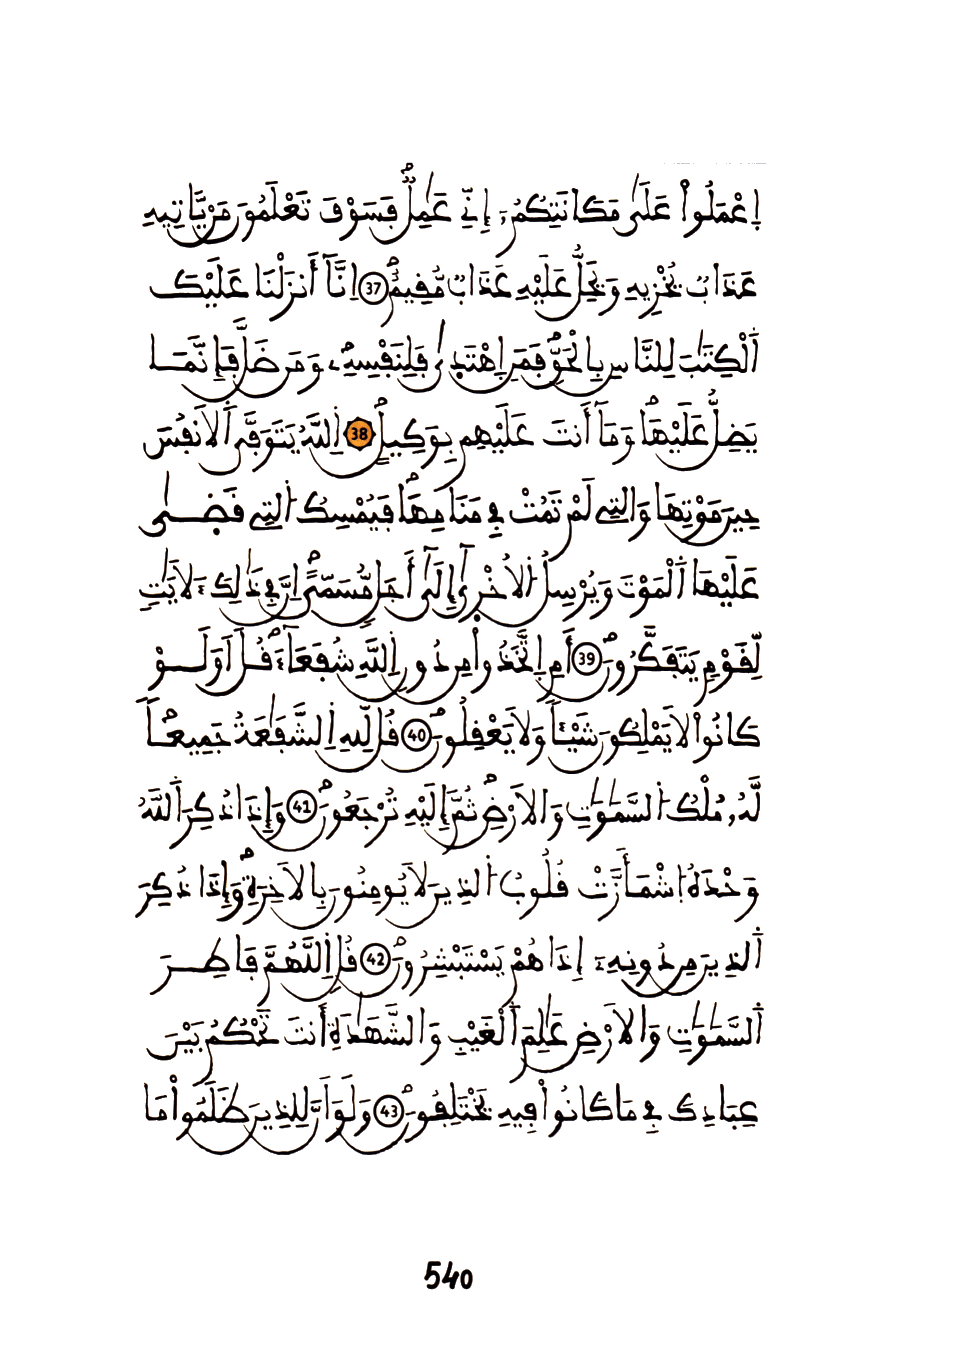 اِ۪عْمَلُواْ عَلَىٰ مَكَانَتِكُمُۥٓ إِنِّے عَٰمِلٞۖ فَسَوْفَ تَعْلَمُونَ مَنْ يَّاتِيهِ
عَذَابٞ يُخْزِيهِ وَيَحِلُّ عَلَيْهِ عَذَابٞ مُّقِيمٌۖ 37 اِنَّآ أَنزَلْنَا عَلَيْكَ
اَ۬لْكِتَٰبَ لِلنَّاسِ بِالْحَقِّۖ فَمَنِ اِ۪هْتَد۪ىٰ فَلِنَفْسِهِۦۖ وَمَن ضَلَّ فَإِنَّمَا
يَضِلُّ عَلَيْهَاۖ وَمَآ أَنتَ عَلَيْهِم بِوَكِيلٍۖ 38 اِ۬للَّهُ يَتَوَفَّى اَ۬لَانفُسَ
حِينَ مَوْتِهَا وَالتِے لَمْ تَمُتْ فِے مَنَامِهَاۖ فَيُمْسِكُ اُ۬لتِے قَض۪ىٰ
عَلَيْهَا اَ۬لْمَوْتَ وَيُرْسِلُ اُ۬لُاخْر۪ىٰٓ إِلَىٰٓ أَجَلٖ مُّسَمّيًۖ اِنَّ فِے ذَٰلِكَ ءَلَايَٰتٖ
لِّقَوْمٖ يَتَفَكَّرُونَۖ 39 أَمِ اِ۪تَّخَذُواْ مِن دُونِ اِ۬للَّهِ شُفَعَآءَۖ قُلَ اَوَلَوْ
كَانُواْ لَا يَمْلِكُونَ شَيْـٔاٗ وَلَا يَعْقِلُونَۖ 40 قُل لِّلهِ اِ۬لشَّفَٰعَةُ جَمِيعاٗۖ
لَّهُۥ مُلْكُ اُ۬لسَّمَٰوَٰتِ وَالَارْضِۖ ثُمَّ إِلَيْهِ تُرْجَعُونَۖ 41 وَإِذَا ذُكِرَ اَ۬للَّهُ
وَحْدَهُ اُ۪شْمَأَزَّتْ قُلُوبُ اُ۬لذِينَ لَا يُومِنُونَ بِالَاخِرَةِۖ وَإِذَا ذُكِرَ
اَ۬لذِينَ مِن دُونِهِۦٓ إِذَا هُمْ يَسْتَبْشِرُونَۖ 42 قُلِ اِ۬للَّهُمَّ فَاطِرَ
اَ۬لسَّمَٰوَٰتِ وَالَارْضِ عَٰلِمَ اَ۬لْغَيْبِ وَالشَّهَٰدَةِ أَنتَ تَحْكُمُ بَيْنَ
عِبَادِكَ فِے مَا كَانُواْ فِيهِ يَخْتَلِفُونَۖ 43 وَلَوَ اَنَّ لِلذِينَ ظَلَمُواْ مَا
540